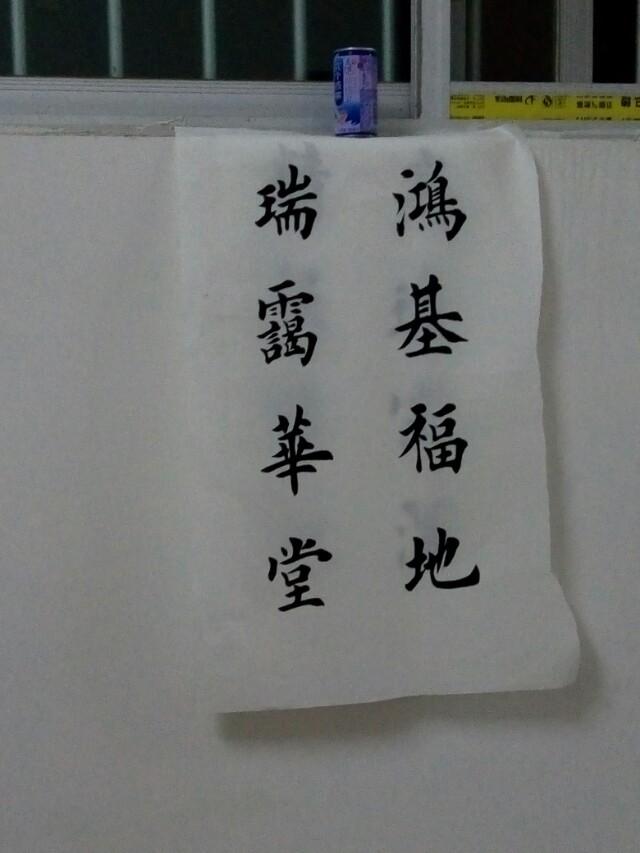 鴻基福地
瑞靄華堂